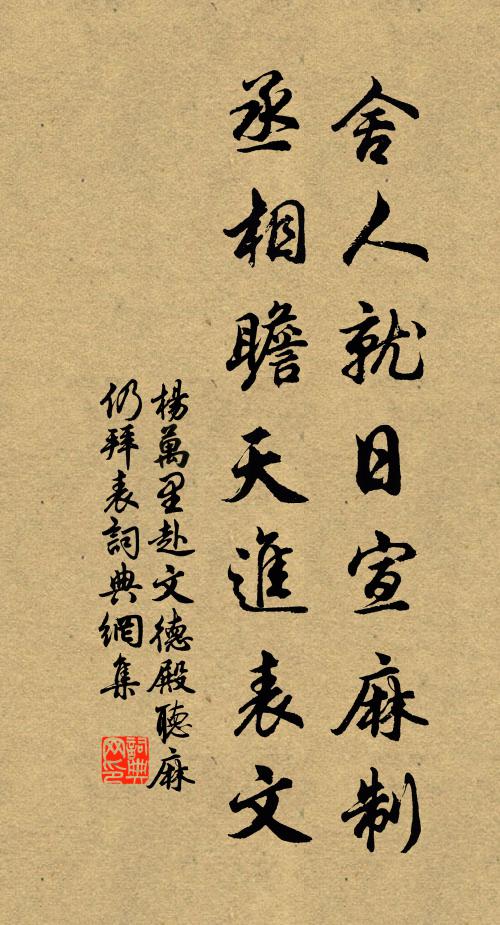 舍人就日宣麻制
丞相瞻天進表文
楊萬里赴文德殿聽麻
仍拜表詞典網集
詞典
网印